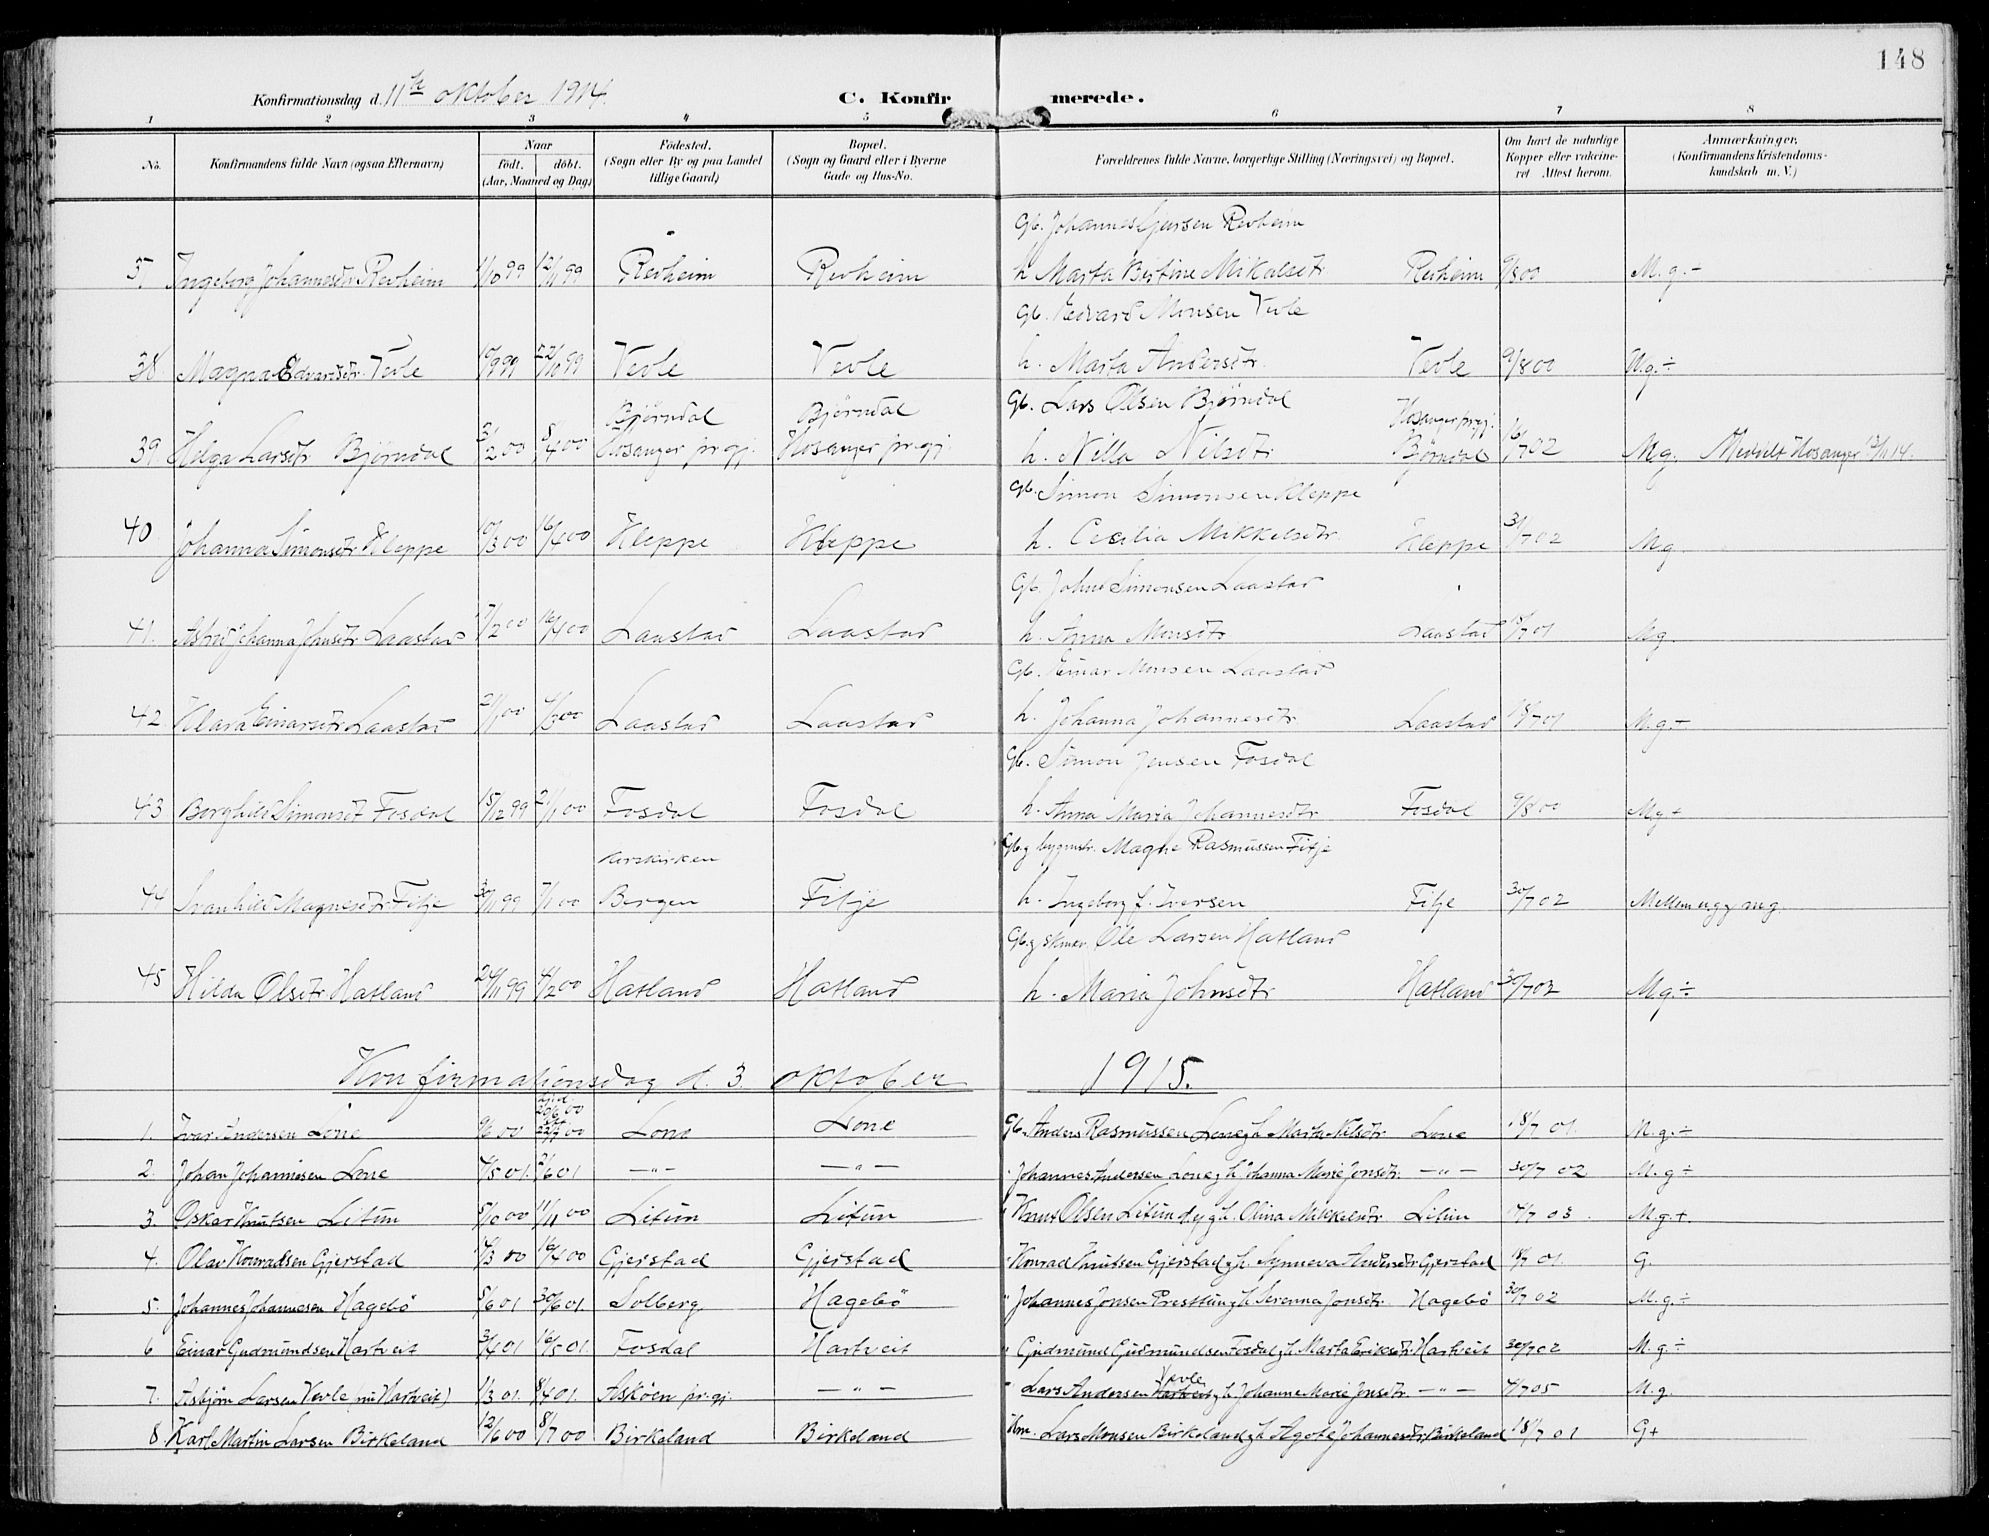 148
Konfirmationsdag d. 11te oktober 1914.
C. Konfirmerede.
1 2 3 4 5 6 7 8
No.
Konfirmandens fulde Navn (ogsaa Efternavn)
Naar
født. døbt.
(Aar, Maaned og Dag)
Fødested.
(Sogn eller By og paa Landet
tillige Gaard)
Bopæl.
(Sogn og Gaard eller i Byerne
Gade og Hus-No.
Forældrenes fulde Navne, borgerlige Stilling (Næringsvei) og Bopæl.
Om havt de naturlige
Kopper eller vakcine-
ret Attest herom.
Anmærkninger.
(Konfirmandens Kristendoms-
kundskab m. V.)
Gb. Johannes Revheim
Ingeborg Johannesdtr. Revheim 1/10 99 12/11 99 Revheim Revheim h. Marta Bertine Mikalsdtr Revheim 9/8 00 M.g.÷
Gb. Edvard Monsen Tevle
38 Magna Edvardsdtr. Tevle Tevle Tevle h. Marta Andersdtr. Tevle 9/8 00 M.g.÷
Bjørndal Bjørndal Gb. Lars Olsen Bjørndal Hosanger prgj.
39. Helga Larsdtr Bjørndal 8/4 00 Hosanger pr.gj. Hosanger pr.gj. h. Nilla Nilsdtr Bjørndal 16/7 02 M.g. Meddelt Hosanger 13/11 14.
Gb. Simon Simonsen Kleppe
40 Johanna Simonsdtr. Kleppe 10/3 00 16/4 00 Kleppe Kleppe h. Cecilia Mikkelsdtr. Kleppe 31/7 02 M.g.
Gb. Johns Simonsen Laastad
41. Astrid Johanna Johnsdtr. Laastad 7/2 00 16/4 00 Laastad Laastad h. Anna Monsdtr Laastad 18/7 01 M.g.
Gb. Einar Monsen Laastad
42 Klara Einarsdtr. Laastad 21/1 00 4/3 00 Laastad Laastad h. Johanna Johannesdtr Laastad 18/7 01 M.g.÷
Gb. Simon Jensen Fosdal
43 Borghild Simonsdt Fosdal 15/12 99 21/1 00 Fosdal Fosdal h. Anna Maria Johannesdtr Fosdal 9/8 00 M.g+
Korskirken Gb. g bygmstr. Magne Rasmussen Fitje
44 Svanhild Magnesdtr. Fitje 30/11 99 7/1 00 Bergen Fitje h. Ingeborg f. Iversen Fitje 30/7 02 Mellem m.g og mg.
Gb. g skmr. Ole Larsen Hatland
45 Hilda Olsdtr Hatland 24/11 99 4/2 00 Hatland Hatland h. Maria Johnsdtr Hatland 30/7 02 M.g.÷
Konfirmationsdag d. 3. oktober 1915.
1. Ivar Andersen Lone 9/6 00 Lone Lone Gb. Anders Rasmussen Lone g h. Marta Nilsdtr Lone 18/7 01. M.g.÷
2. Johan Johannesen Lone 4/5 01. 2/6 01 —"— —"— " Johannes Andersen Lone g h. Johanna Marie Jonsdtr. —"— 30/7 02 M.g÷
3. Oskar Knutsen Litun 5/10 00 11/11 00 Litun Litun " Knut Olsen Litun dy g h. Olina Mikkelsdtr Litun M.g.+.
4. Olav Konradsen Gjerstad 16/4 00 Gjerstad Gjerstad " Konrad Knutsen Gjerstad g h. Synneva Andersdtr Gjerstad 18/7 01. G.
5. Johannes Johannesen Hagebø 5/6 01. 30/6 01. Solberg Hagebø " Johannes Jonsen Presttun g h. Serenna Jonsdtr. Hagebø 30/7 02 M.g.÷
6 Einar Gudmundsen Hartveit 3/4 01 16/5 01. Fosdal Hartveit " Gudmund Gudmundsen Fosdal g h. Marta Eriksdtr Hartveit 30/7 02 M.g.÷
Vevle
7. Asbjørn Larsen Vevle (nu Hartveit) 1/3 01. 8/4 01. Askøen pr.gj. —"— " Lars Andersen Hartveit g h. Johanne Marie Jonsdtr. —"— 4/7 05 M.g.
8 Karl Martin Larsen Birkeland 12/6 00 8/7 00 Birkeland Birkeland Lars Monsen Birkeland g h. Agate Johannesdtr Birkeland 18/7 01 G+